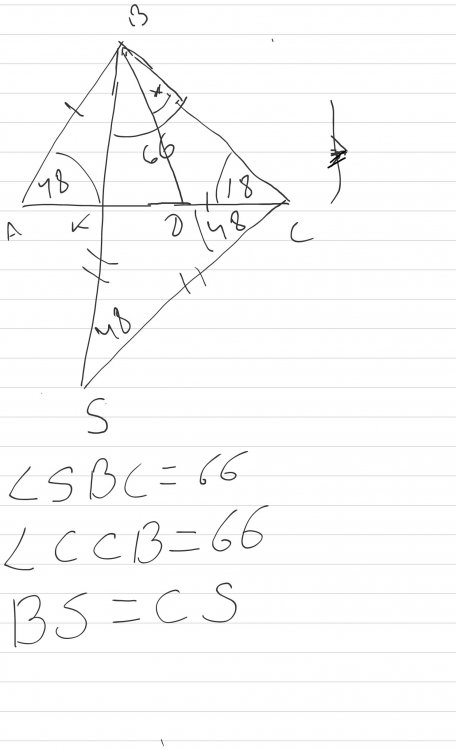 B
x
66
48
18
A K D C
48
48
S
∠SBC=66
∠CCB=66
BS=CS